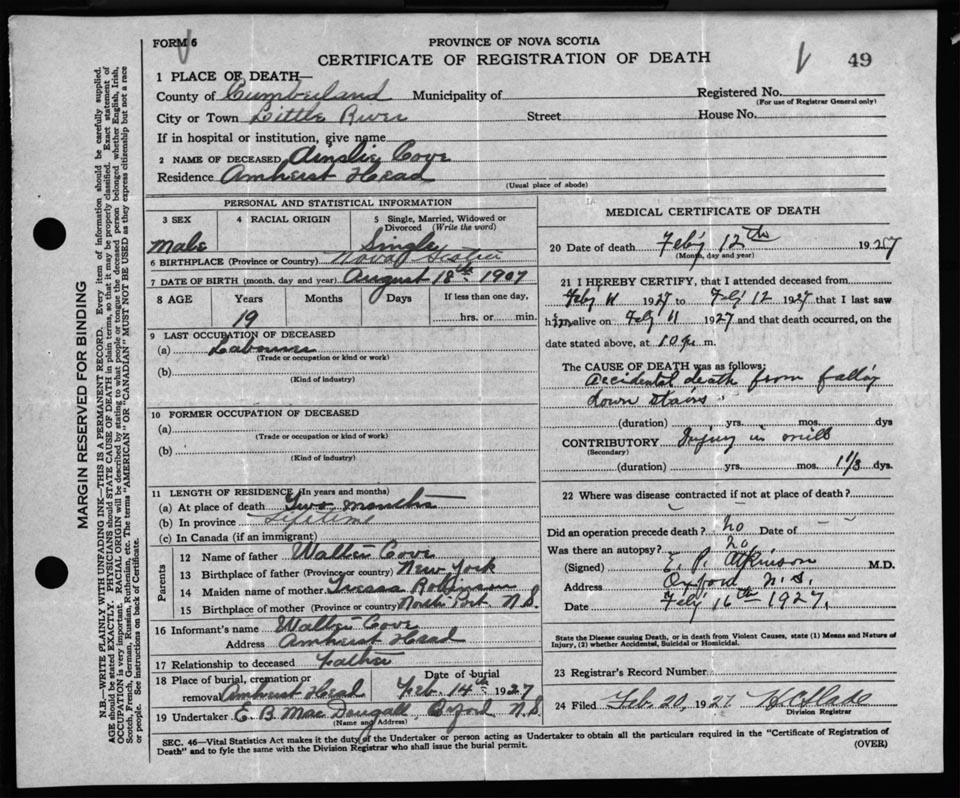 FORM 6
PROVINCE OF NOVA SCOTIA
CERTIFICATE OF REGISTRATION OF DEATH
49
1 PLACE OF DEATH—
County of Cumberland Municipality of Registered No.
(For use of Registrar General only)
City or Town Little River Street House No.
If in hospital or institution, give name
2 NAME OF DECEASED Ainslie Cove
Residence Amherst Head
(Usual place of abode)
PERSONAL AND STATISTICAL INFORMATION
3 SEX 4 RACIAL ORIGIN 5 Single, Married, Widowed or Divorced (Write the word)
Male Single
6 BIRTHPLACE (Province or Country) Nova Scotia
7 DATE OF BIRTH (month, day and year) August 18th 1907
8 AGE Years Months Days If less than one day,
19 hrs. or min.
9 LAST OCCUPATION OF DECEASED
(a) Labourer
(Trade or occupation or kind of work)
(b)
(Kind of industry)
10 FORMER OCCUPATION OF DECEASED
(a)
(Trade or occupation or kind of work)
(b)
(Kind of industry)
11 LENGTH OF RESIDENCE (In years and months)
(a) At place of death Two months
(b) In province Lifetime
(c) In Canada (if an immigrant)
Parents
12 Name of father Walter Cove
13 Birthplace of father (Province or country) New York
14 Maiden name of mother Robinson
15 Birthplace of mother (Province or country) North Port N.S.
16 Informant's name Walter Cove
Address Amherst Head
17 Relationship to deceased Father
18 Place of burial, cremation or removal Amherst Head Date of burial Feb. 14th 1927
19 Undertaker E. B. MacDougall Oxford N S
(Name and Address)
MEDICAL CERTIFICATE OF DEATH
20 Date of death Feb'y 12th 1927
(Month, day and year)
21 I HEREBY CERTIFY, that I attended deceased from
Feb'y 11 1927 to Feb'y 12 1927 that I last saw
him alive on Feb'y 11 1927 and that death occurred, on the
date stated above, at m.
The CAUSE OF DEATH was as follows:
Accidental death from falling
down stairs.
(duration) yrs. mos. dys
CONTRIBUTORY Injury in mill
(Secondary)
(duration) yrs. mos. 1 1/3 dys.
22 Where was disease contracted if not at place of death?
Did an operation precede death? no Date of
Was there an autopsy? no
(Signed) E. P. Atkinson M.D.
Address Oxford N.S.
Date Feb'y 16th 1927.
State the Disease causing Death, or in death from Violent Causes, state (1) Means and Nature of
Injury, (2) whether Accidental, Suicidal or Homicidal.
23 Registrar's Record Number
24 Filed Feb. 20, 1927
Division Registrar
SEC. 46—Vital Statistics Act makes it the duty of the Undertaker or person acting as Undertaker to obtain all the particulars required in the "Certificate of Registration of
Death" and to fyle the same with the Division Registrar who shall issue the burial permit.
(OVER)
MARGIN RESERVED FOR BINDING
N.B.—WRITE PLAINLY WITH UNFADING INK—THIS IS A PERMANENT RECORD. Every item of information should be carefully supplied.
AGE should be stated EXACTLY. PHYSICIANS should STATE CAUSE OF DEATH in plain terms, so that it may be properly classified. Exact statement of
OCCUPATION is very important. RACIAL ORIGIN will be described by stating to what people or tongue the deceased person belonged whether English, Irish,
Scotch, French, German, Russian, Ruthenian, etc. The terms "AMERICAN" OR "CANADIAN" MUST NOT BE USED as they express citizenship but not a race
or people. See instructions on back of Certificate.